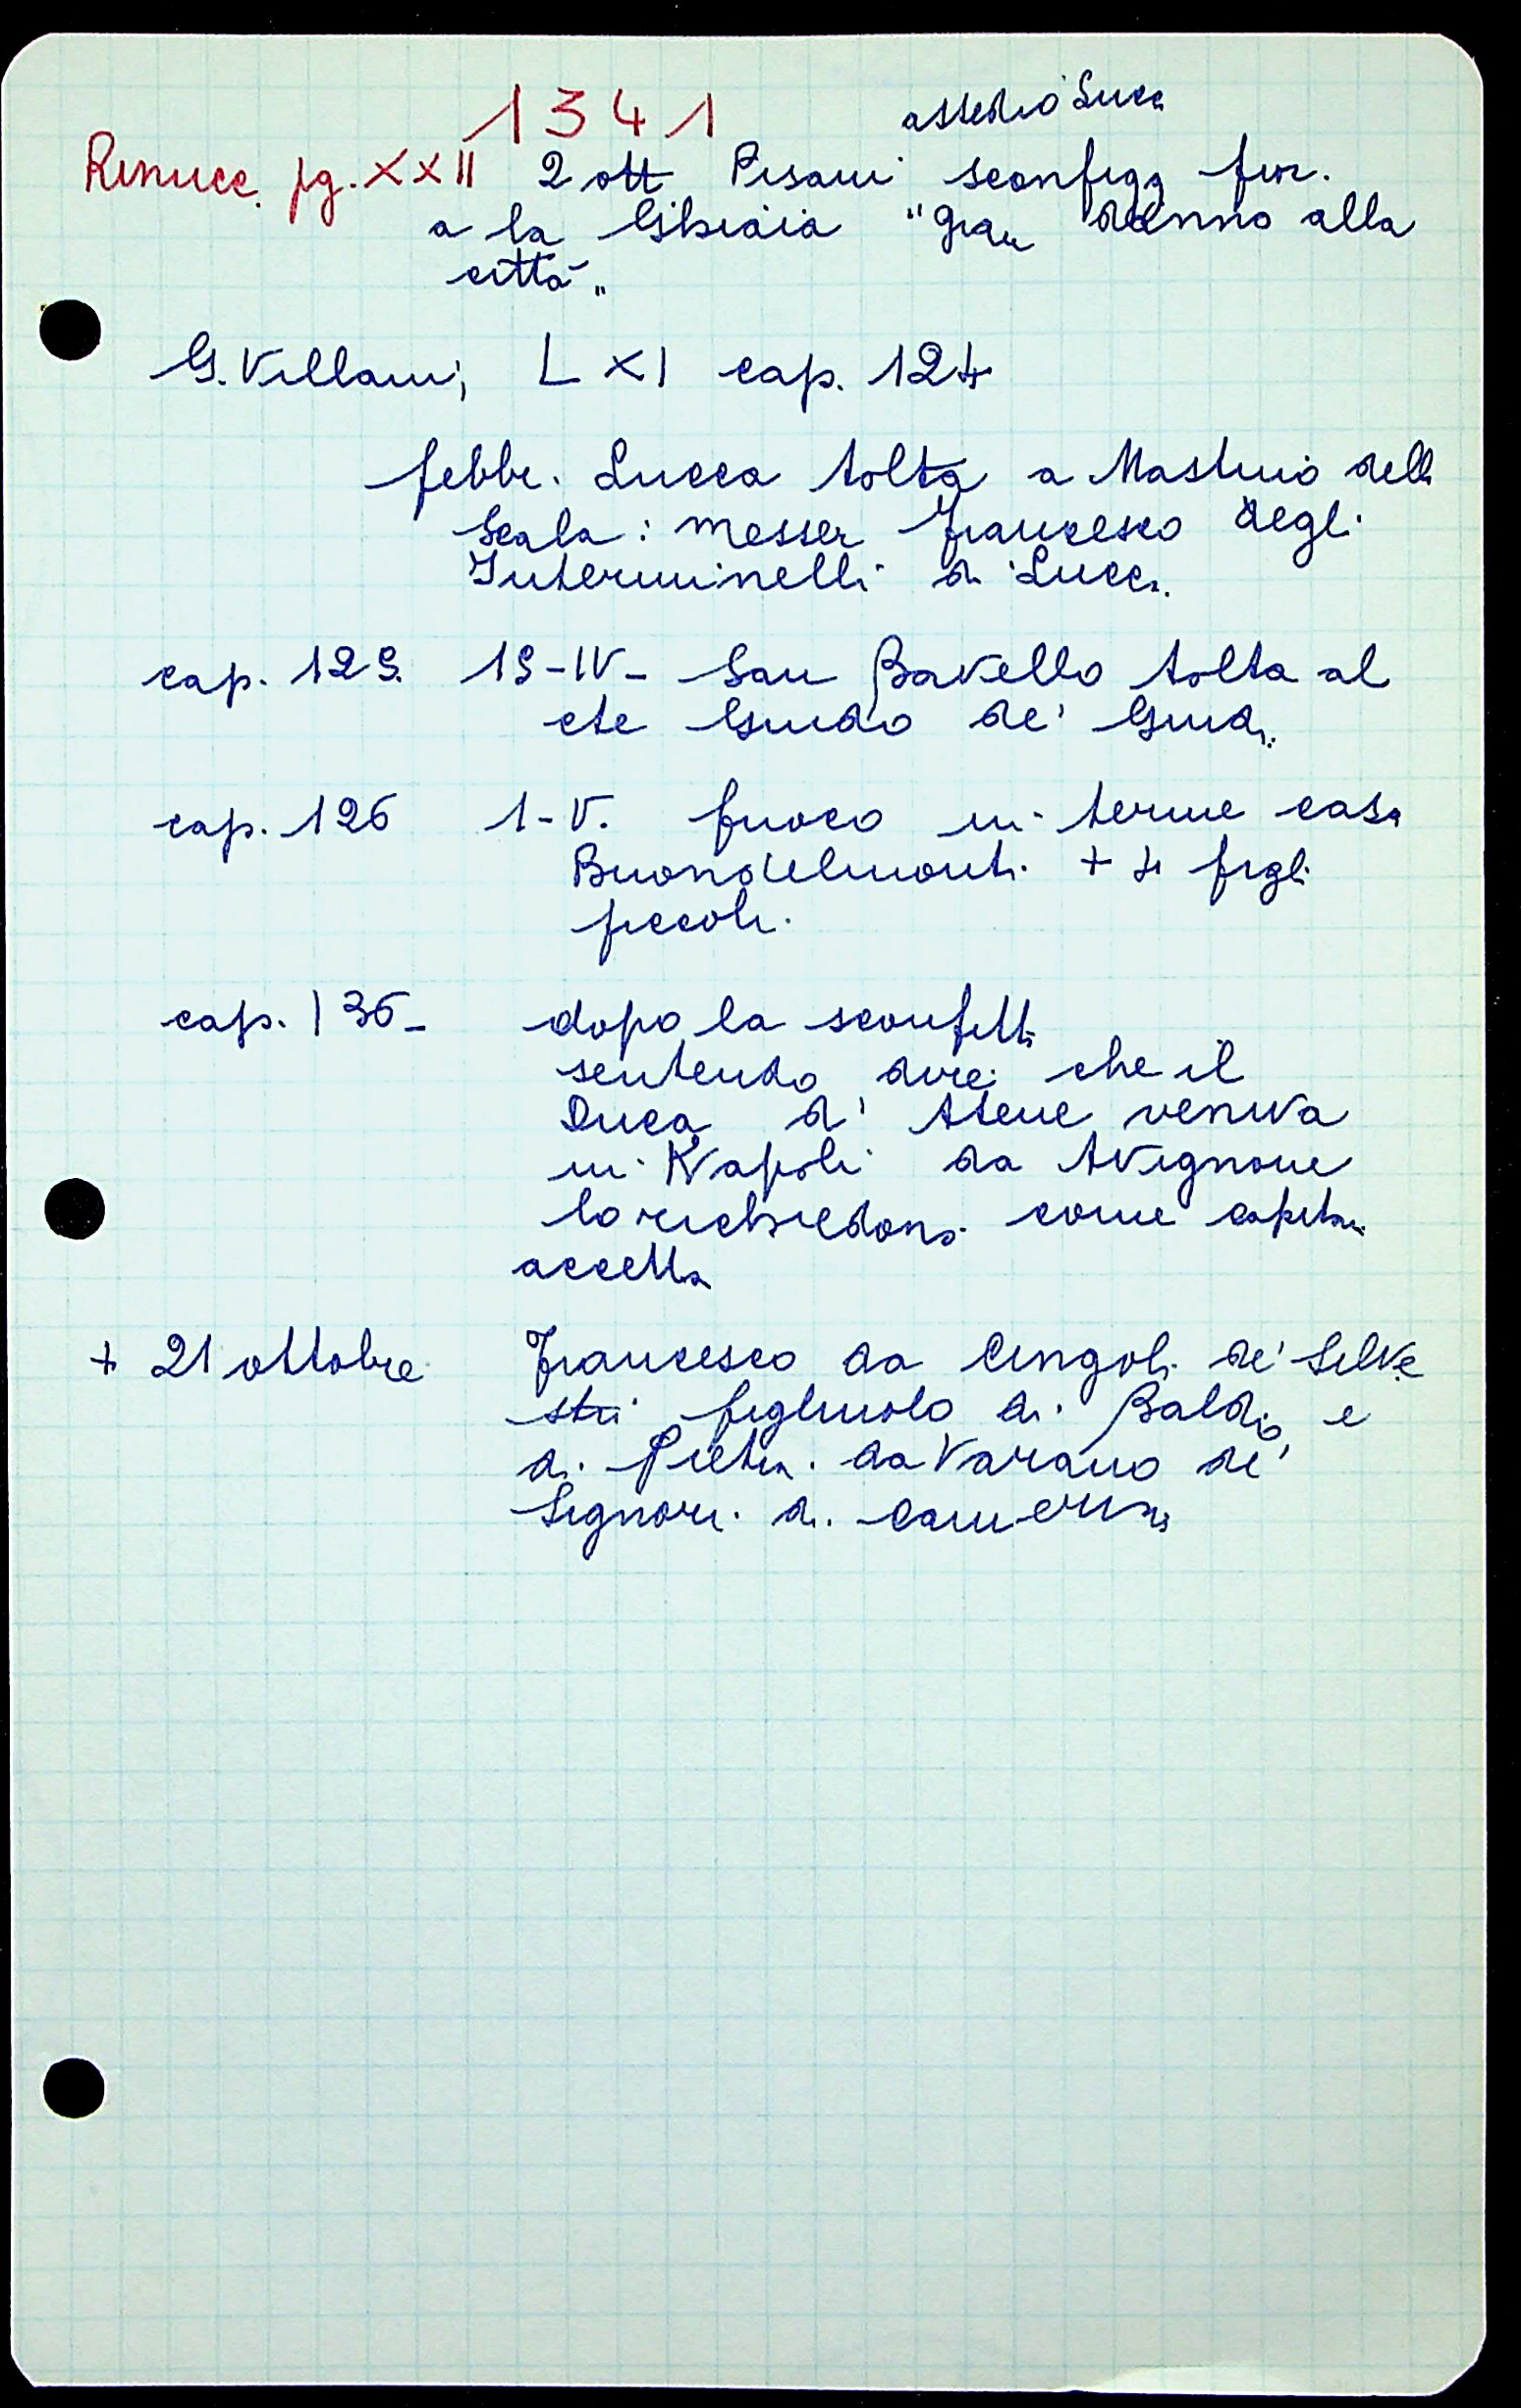 1341
assedio Lucca
Rinucc. pg. XXII 2 ott Pisani sconfigg fior.
a la Ghiaia "gran danno alla
città"
G. Villani, L XI cap. 124
febbr. Lucca tolta a Mastino della
Scala: messer Francesco degli
Interminelli di Lucca.
cap. 129. 19-IV- San Bavello tolta al
cte Guido de' Guidi.
cap. 126 1-V. fuoco in terme casa
Buondelmonti + 4 figli
piccoli.
cap. 136- dopo la sconfitta
sentendo dire che il
Duca d'Atene veniva
in Napoli da Avignone
lo richiedono come capitano
accetta
+ 21 ottobre Francesco da Cingoli de' Silve
stri figliuolo di Baldo e
di Pietra da Varano de'
Signori di Camerino